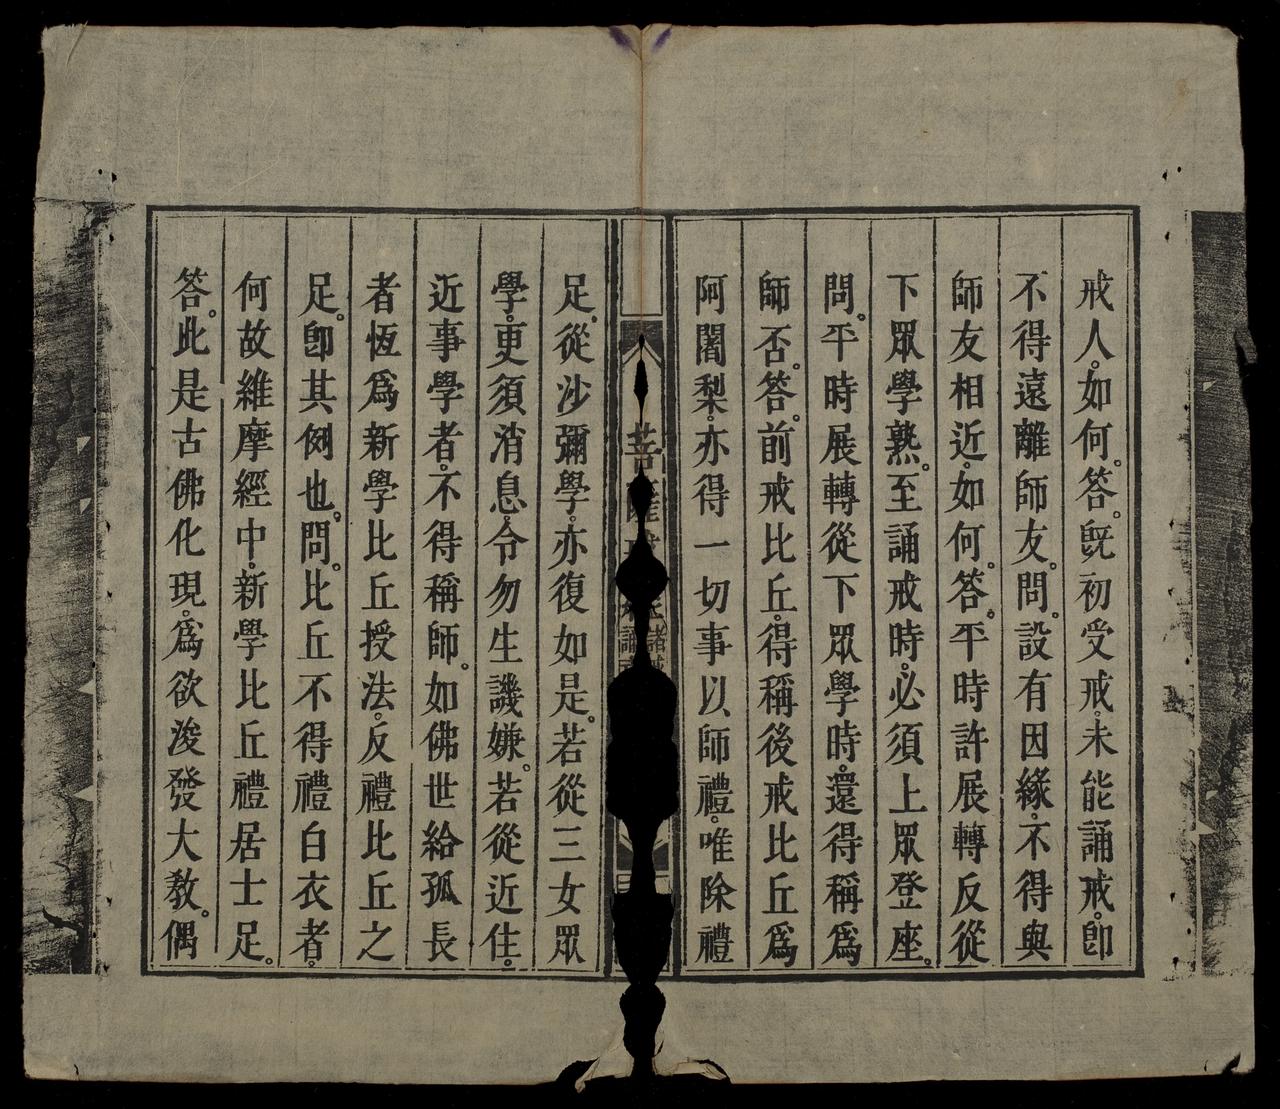 戒人。如何。答。旣初受戒。未能誦戒。卽
不得遠離師友。問。設有因緣。不得與
師友相近。如何。答。平時許展轉反從
下眾學熟。至誦戒時。必須上眾登座。
問。平時展轉從下眾學時。還得稱爲
師否。答。前戒比丘。得稱後戒比丘爲
阿闍梨。亦得一切事以師禮。唯除禮
菩薩戒
足。從沙彌學。亦復如是。若從三女眾
學。更須消息。令勿生譏嫌。若從近住。
近事學者。不得稱師。如佛世給孤長
者恆爲新學比丘授法。反禮比丘之
足。卽其例也。問。比丘不得禮白衣者。
何故維摩經中。新學比丘禮居士足。
答。此是古佛化現。爲欲浚發大敎。偶